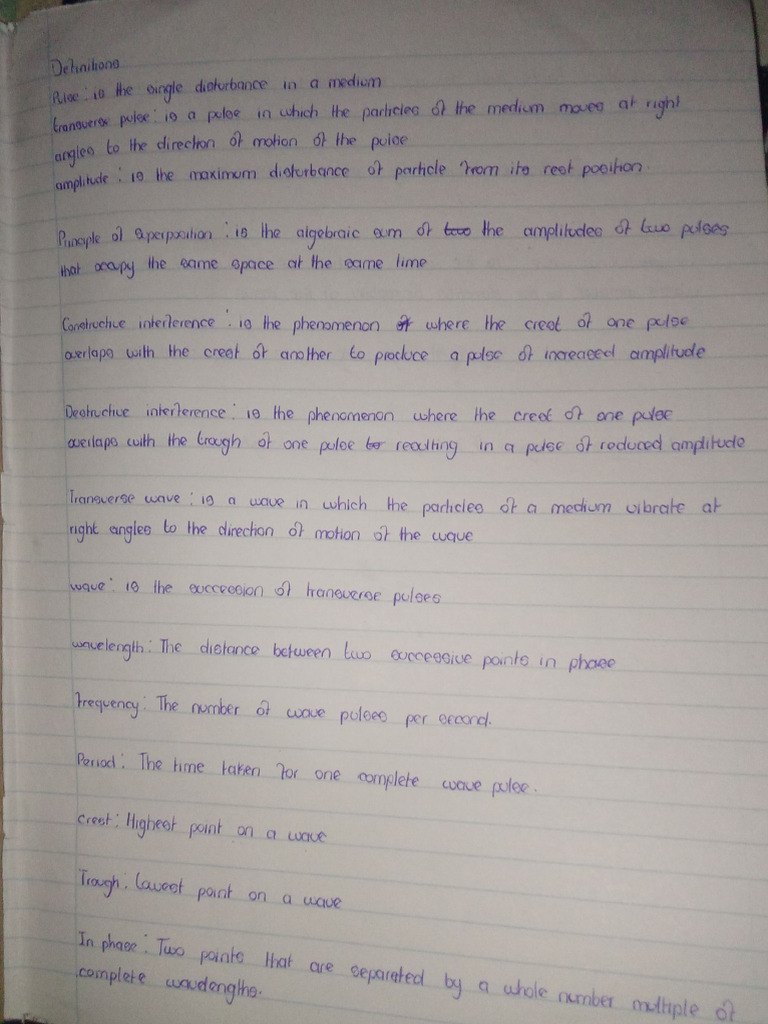 Definitions
Pulse : is the single disturbance in a medium
transverse pulse : is a pulse in which the particles of the medium moves at right
angles to the direction of motion of the pulse
amplitude : is the maximum disturbance of particle from its rest position.
Principle of Superposition : is the algebraic sum of two the amplitudes of two pulses
that occupy the same space at the same time
Constructive interference : is the phenomenon of where the crest of one pulse
overlaps with the crest of another to produce a pulse of increased amplitude
Destructive interference : is the phenomenon where the crest of one pulse
overlaps with the trough of one pulse to resulting in a pulse of reduced amplitude
Transverse wave : is a wave in which the particles of a medium vibrate at
right angles to the direction of motion of the wave
wave : is the succession of transverse pulses
wavelength : The distance between two successive points in phase
frequency : The number of wave pulses per second.
Period : The time taken for one complete wave pulse.
Crest : Highest point on a wave
Trough : Lowest point on a wave
In phase : Two points that are separated by a whole number multiple of
complete wavelengths.